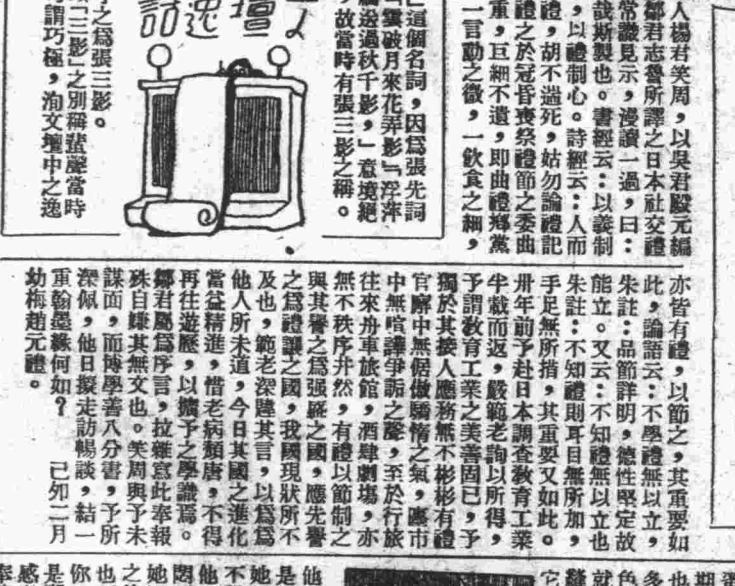 人楊君笑周，以吳君殿元編
鄒君志魯所譯之日本社交禮
常識見示，漫讀一過，曰：
哉斯製也。書經云：以義制
，以禮制心。詩經云：人而
禮，胡不遄死，姑勿論禮記
禮之於冠昏喪祭禮節之委曲
重，巨細不遺，即曲禮鄉黨
一言動之微，一飲食之細，
亦皆有禮，以節之，其重要如
此，論語云：不學禮無以立，
朱註：品節詳明，德性堅定故
能立。又云：不知禮無以立也
朱註：不知禮則耳目無所加，
手足無所措，其重要又如此。
卅年前予赴日本調查教育工業
半載而返，嚴範老詢以所得，
予謂教育工業之美善固已，予
獨於其接人應務無不彬彬有禮
官廨中無倨傲驕惰之氣，廛市
中無喧譁爭詬之聲，至於行旅
往來舟車旅館，酒肆劇場，亦
無不秩序井然，有禮以節制之
與其譽之為强盛之國，應先譽
之為禮讓之國，我國現狀所不
及也，範老深韙其言，以為為
他人所未道，今日其國之進化
當益精進，惜老病頹唐，不得
再往遊歷，以擴予之學識焉。
鄒君屬為序言，拉雜寫此奉報
殊自嫌其無文也。笑周與予未
謀面，而博學善八分書，予所
深佩，他日擬走訪暢談，結一
重翰墨緣何如？　己卯二月
幼梅趙元禮。
壇逸話
」這個名詞，因為張先詞
雲破月來花弄影」「浮萍
牆送過秋千影，」意境絕
，故當時有張三影之稱。
字之為張三影。
三影」之別稱蜚聲當時
謂巧極，洵文壇中之逸